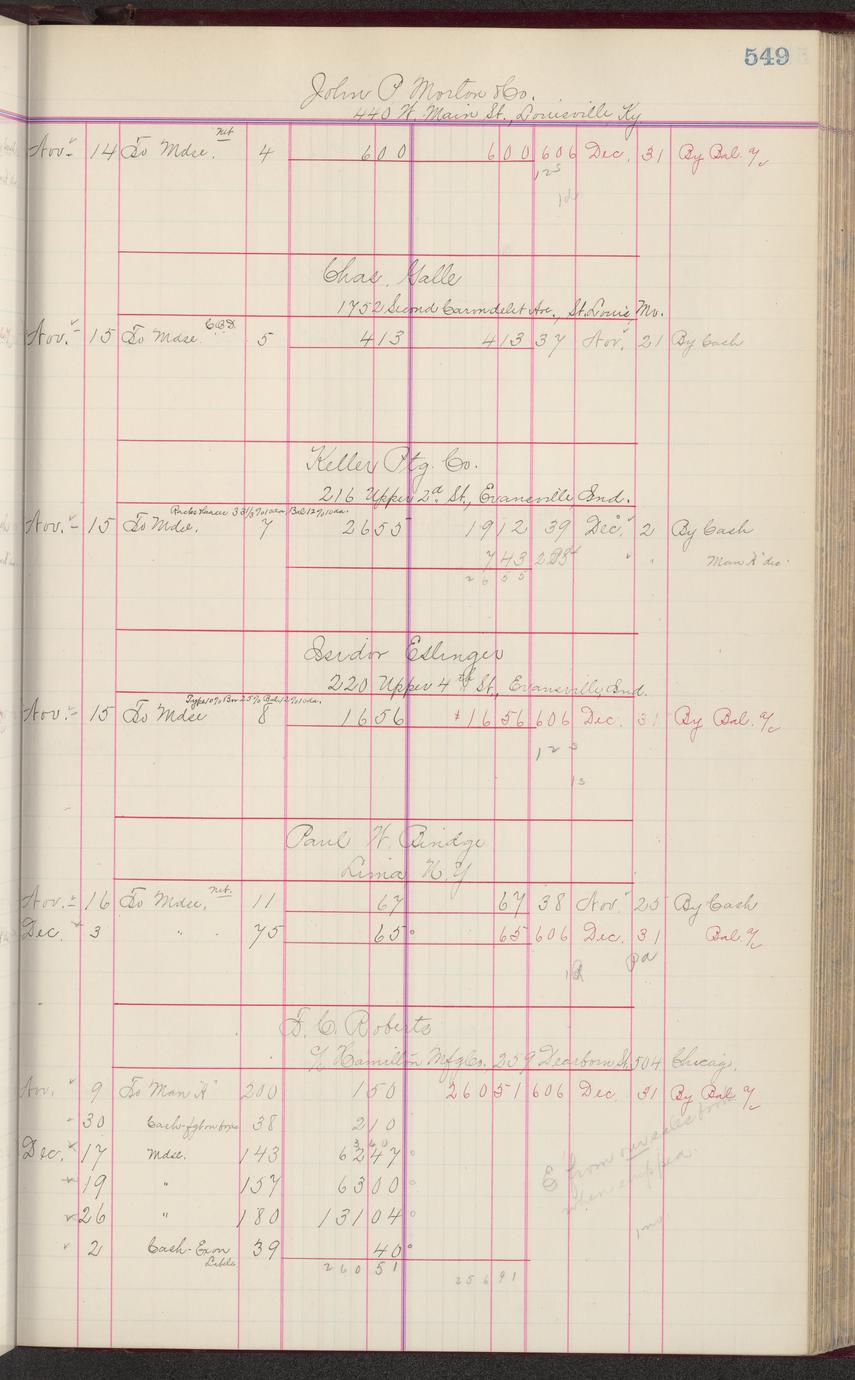 549
John P Morton & Co.
440 W. Main St., Louisville, Ky
Nov. 14 To Mdse. net 4 6 00 6 00 606 Dec. 31 By Bal. a/c
123
Chas. Galle
1752 Second Carondelet Ave., St. Louis Mo.
Nov. 15 To Mdse. C.O.D. 5 4 13 4 13 37 Nov. 21 By Cash
Keller Ptg. Co.
216 Upper 2d St., Evansville, Ind.
33 1/3 % 10 da. Bal 2 % 10 da.
Nov. 15 To Mdse. 7 26 55 19 12 39 Dec. 2 By Cash
7 43 " " Man "A" dis.
26 55
Isidor Eslinger
220 Upper 4th St., Evansville, Ind.
Type 10% Bor 25% Bal. 2% 10 da.
Nov. 15 To Mdse 8 16 56 16 56 606 Dec. 31 By Bal. a/c
123
13
Paul W. Bindge
Lima N.Y
Nov. 16 To Mdse. net. 11 67 67 38 Nov. 25 By Cash
Dec. 3 " " 75 65 65 606 Dec. 31 Bal. a/c
Pd
F. C. Roberts
c/o Hamilton Mfg Co. 259 Dearborn St. 504 Chicago.
Nov. 9 To Man "A" 200 1 50 260 51 606 Dec. 31 By Bal a/c
30 Cash-fgt on boxes 38 2 10
3 60
Dec. 17 Mdse. 143 62 47
19 " 157 63 00
26 " 180 131 04
2 Cash-Exon Labels 39 40
260 51 256 91
E from our sales book
when shipped.